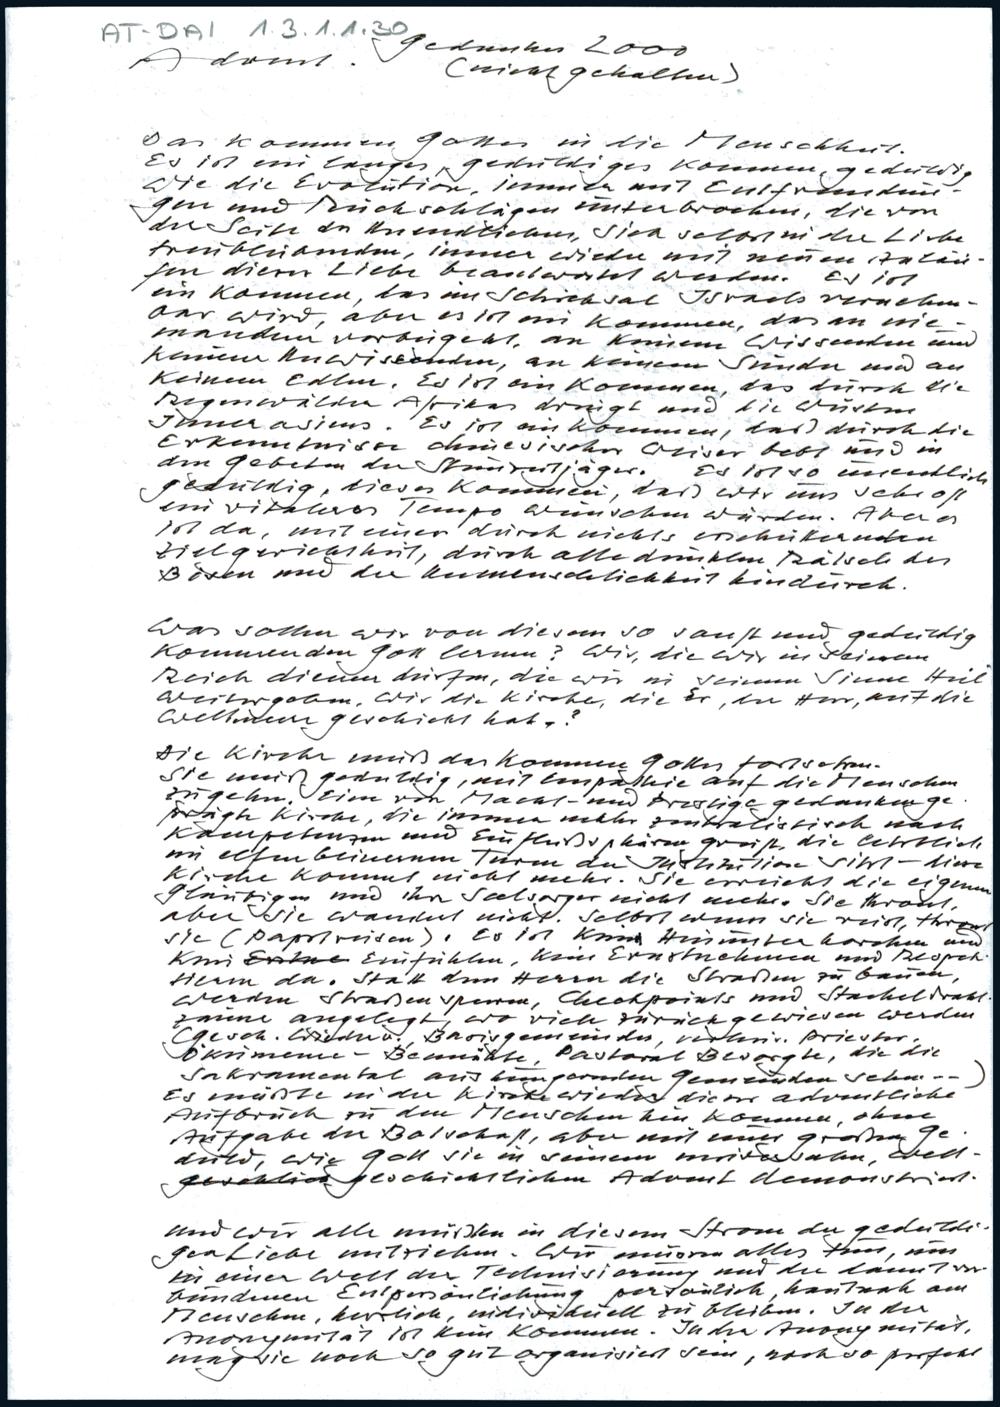 AT-DAI 1.3.1.1.30
Advent. gedanken 2000
(nicht gehalten)
Das Kommen Gottes in die Menschheit.
Es ist ein langes, geduldiges Kommen, geduldig
wie die Evolution, immer mit Entfremdun-
gen und Rückschlägen unterbrochen, die von
der Seite des Unendlichen, sich selbst in der Liebe
treubleibenden, immer wieder mit neuen Anläu-
fen dieser Liebe beantwortet werden. Es ist
ein Kommen, das im Schicksal Israels vernehm-
bar wird, aber es ist ein Kommen, das an nie-
mandem vorbeigeht, an keinem Wissenden und
keinem Unwissenden, an keinem Sünder und an
keinem Edlen. Es ist ein Kommen, das durch die
Regenwälder Afrikas dringt und die Wüsten
Innerasiens. Es ist ein Kommen, das durch die
Erkenntnisse chinesischer Weiser bebt und in
den Gebeten der Steinzeitjäger. Es ist so unendlich
geduldig, dieses Kommen, daß wir uns sehr oft
ein vitaleres Tempo wünschen würden. Aber es
ist da, mit einer durch nichts erschütternden
Zielgerichtetheit, durch alle dunklen Rätsel des
Bösen und der Unmenschlichkeit hindurch.
Was sollen wir von diesem so sanft und geduldig
kommenden Gott lernen? Wir, die wir in seinem
Reich dienen dürfen, die wir in seinem Sinne Heil
weitergeben, wir die Kirche, die Er, der Herr, auf die
Weltmeere geschickt hat.?
Die Kirche muß das Kommen Gottes fortsetzen.
Sie muß geduldig, mit Empathie auf die Menschen
zugehn. Eine von Macht- und Prestigegedanken ge-
prägte Kirche, die immer mehr zentralistisch nach
Kompetenzen und Einflußsphären greift, die letztlich
im elfenbeinernen Turm der Institution sitzt - diese
Kirche kommt nicht mehr. Sie erreicht die eigenen
Gläubigen und ihre Seelsorger nicht mehr. Sie thront,
aber sie wandert nicht. Selbst wenn sie reist, thront
sie (Papstreisen). Es ist kein Hinunterhorchen und
kein Einfühlen, kein Ernstnehmen und Respek-
tieren da. Statt dem Herrn die Straßen zu bauen,
werden Straßensperren, Checkpoints und Stacheldraht-
zäune angelegt, wo viele zurückgewiesen werden
(gesch. Wiederv., Basisgemeinden, verheir. Priester,
Ökumene-Bemühte, Pastoral Besorgte, die die
sakramental aushungernden Gemeinden sehn --)
Es müßte in der Kirche wieder dieser adventliche
Aufbruch zu den Menschen hin kommen, ohne
Aufgabe der Botschaft, aber mit einer großen Ge-
duld, wie Gott sie in seinem universalen, welt-
geschichtlichen Advent demonstriert.
Und wir alle müßten in diesem Strom der geduldi-
gen Liebe mitziehen. Wir müssen alles tun, um
in einer Welt der Technisierung und der damit ver-
bundenen Entpersönlichung persönlich, hautnah am
Menschen, herzlich, individuell zu bleiben. In der
Anonymität ist kein Kommen. In der Anonymität,
mag sie noch so gut organisiert sein, noch so perfekt